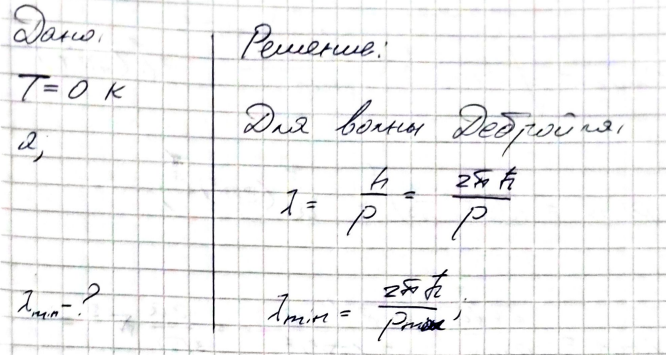 Дано:
T = 0 К
λ_min - ?
Решение:
Для волны Дебройля,
λ = h/p = 2πħ/p
λ_min = 2πħ/p_max;